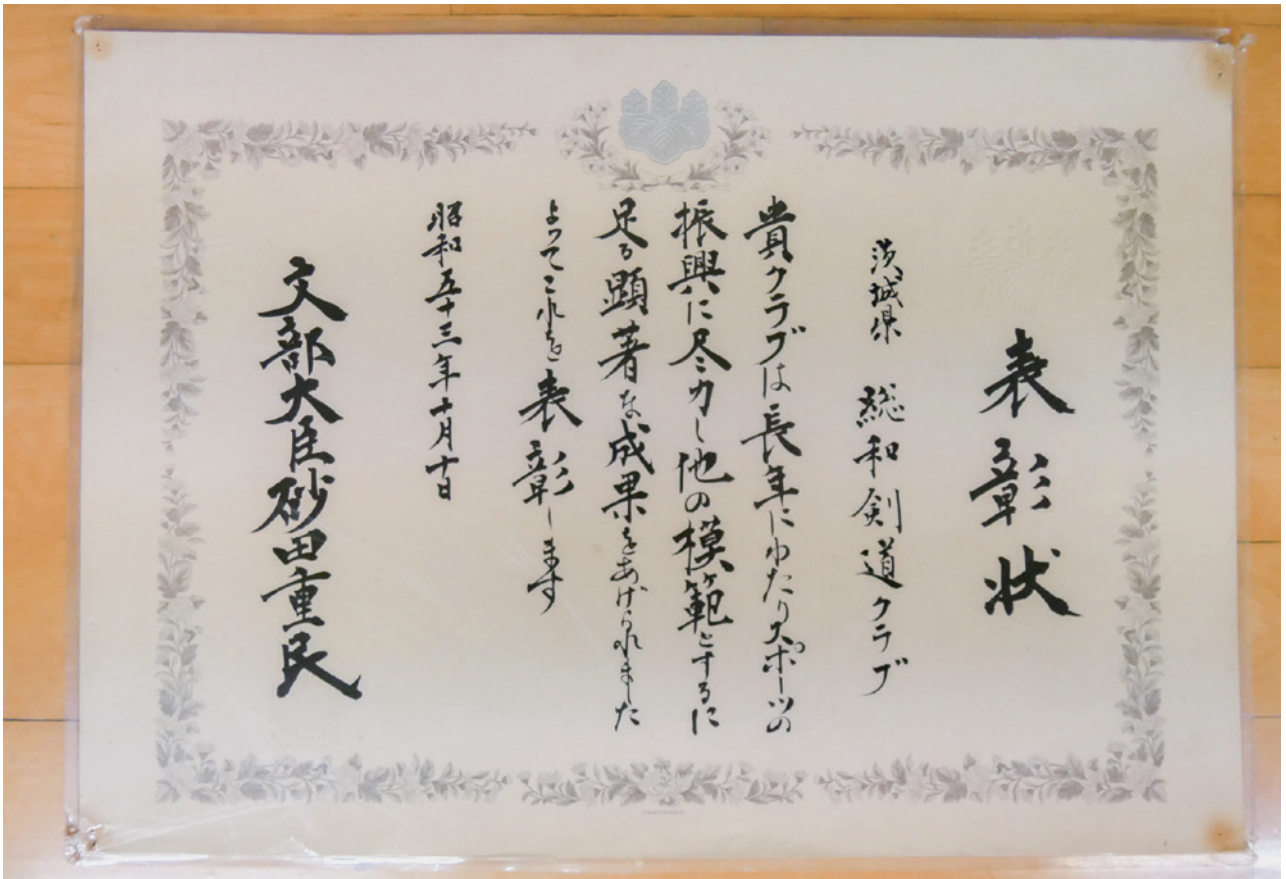 表彰状
茨城県 総和剣道クラブ
貴クラブは長年にわたりスポーツの
振興に尽力し他の模範とするに
足る顕著な成果をあげられました
よってこれを表彰します
昭和五十三年十月十日
文部大臣砂田重民